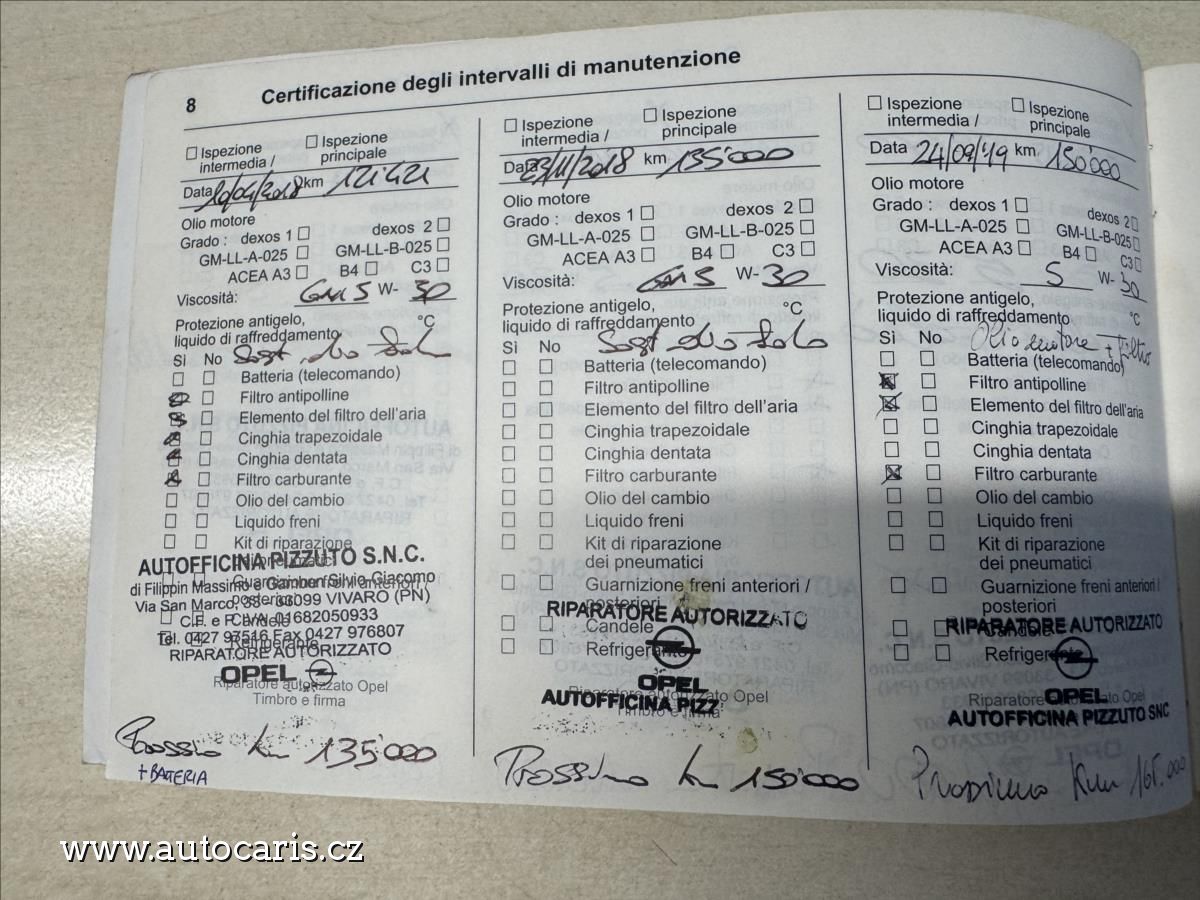 8 Certificazione degli intervalli di manutenzione
Ispezione intermedia /
Ispezione principale
Data 10/04/2018 km 121'421
Olio motore
Grado : dexos 1 dexos 2
GM-LL-A-025 GM-LL-B-025
ACEA A3 B4 C3
Viscosità: GM 5 W- 30
Protezione antigelo,
liquido di raffreddamento °C
Sì No Sost. olio
Batteria (telecomando)
Filtro antipolline
Elemento del filtro dell'aria
Cinghia trapezoidale
Cinghia dentata
Filtro carburante
Olio del cambio
Liquido freni
Kit di riparazione
dei pneumatici
Guarnizione freni anteriori
posteriori
Candele
Refrigerante
AUTOFFICINA PIZZUTO S.N.C.
di Filippin Massimo e Gambon Silvio Giacomo
Via San Marco, 33 - 33099 VIVARO (PN)
C.F. e P. IVA 01682050933
Tel. 0427 97516 Fax 0427 976807
RIPARATORE AUTORIZZATO
OPEL
Riparatore autorizzato Opel
Timbro e firma
Prossimo Km 135'000
+ BATTERIA
Ispezione intermedia /
Ispezione principale
Data 23/11/2018 km 135'000
Olio motore
Grado : dexos 1 dexos 2
GM-LL-A-025 GM-LL-B-025
ACEA A3 B4 C3
Viscosità: GM 5 W- 30
Protezione antigelo,
liquido di raffreddamento °C
Sì No Sost. olio
Batteria (telecomando)
Filtro antipolline
Elemento del filtro dell'aria
Cinghia trapezoidale
Cinghia dentata
Filtro carburante
Olio del cambio
Liquido freni
Kit di riparazione
dei pneumatici
Guarnizione freni anteriori /
posteriori
Candele
Refrigerante
RIPARATORE AUTORIZZATO
OPEL
AUTOFFICINA PIZZ
Riparatore autorizzato Opel
Timbro e firma
Prossimo Km 150'000
Ispezione intermedia /
Ispezione principale
Data 24/09/'19 km 150'000
Olio motore
Grado : dexos 1 dexos 2
GM-LL-A-025 GM-LL-B-025
ACEA A3 B4 C3
Viscosità: 5 W- 30
Protezione antigelo,
liquido di raffreddamento °C
Sì No Olio motore + Filtro
Batteria (telecomando)
Filtro antipolline
Elemento del filtro dell'aria
Cinghia trapezoidale
Cinghia dentata
Filtro carburante
Olio del cambio
Liquido freni
Kit di riparazione
dei pneumatici
Guarnizione freni anteriori /
posteriori
Candele
Refrigerante
RIPARATORE AUTORIZZATO
OPEL
Riparatore autorizzato Opel
AUTOFFICINA PIZZUTO SNC
Prossimo Km 165.000
www.autocaris.cz